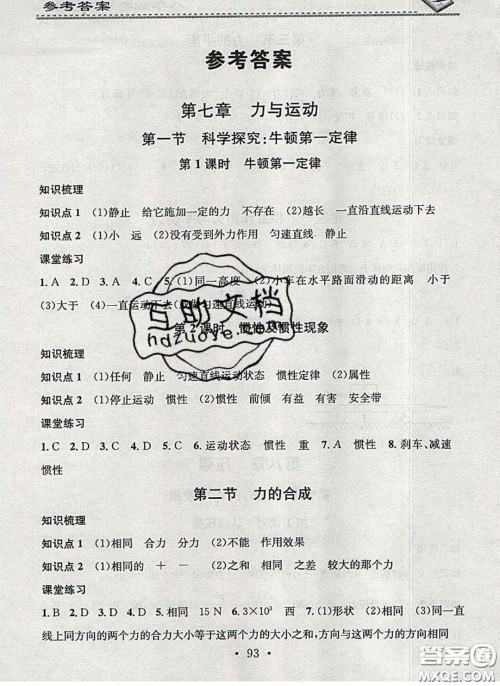 参考答案
参考答案
第七章 力与运动
第一节 科学探究:牛顿第一定律
第1课时 牛顿第一定律
知识梳理
知识点1 (1)静止 给它施加一定的力 不存在 (2)越长 一直沿直线运动下去
知识点2 (1)小 远 (2)没有受到外力作用 匀速直线 静止
课堂练习
1.A 2.D 3.A 4.C 5.(1)同一高度 (2)小车在水平路面滑动的距离 小于
(3)大于 (4)一直运动下去(或做匀速直线运动)
第2课时 惯性及惯性现象
互助文档
hdzuoye.com
知识梳理
知识点1 (1)任何 静止 匀速直线运动状态 惯性定律 (2)属性
知识点2 (1)停止运动 惯性 (2)惯性 前倾 有益 有害 安全带
课堂练习
1.C 2.D 3.C 4.D 5.C 6.运动状态 惯性 重 7.A 惯性 8.刹车、减速
惯性
第二节 力的合成
知识梳理
知识点1 (1)相同 合力 分力 (2)不能 作用效果
知识点2 (1)相同的 + - (2)之和 相同 之差 较大的那个力
课堂练习
1.B 2.D 3.A 4.D 5.相同 15 N 6.3×10³ 西 7.(1)形状 (2)相同 (3)同一直
线上同方向的两个力的合力大小等于这两个力的大小之和,方向与这两个力的方向相同
· 93 ·
答案圈
MXQE.COM